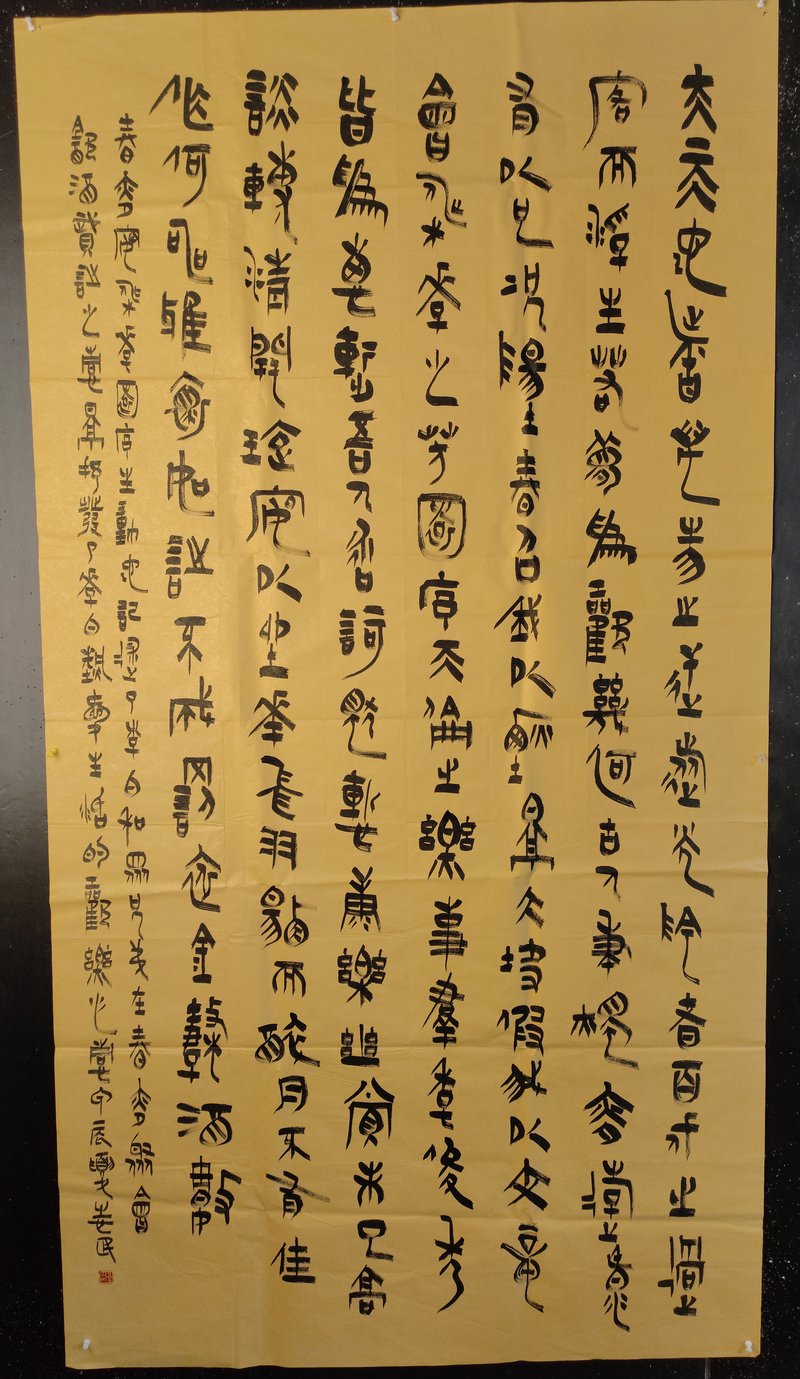 夫天地者萬物之逆旅也光陰者百代之過
客而浮生若夢為歡幾何古人秉燭夜遊良
有以也況陽春召我以煙景大塊假我以文章
會桃李之芳園序天倫之樂事群季俊秀
皆為惠連吾人詠歌獨慚康樂幽賞未已高
談轉清開瓊筵以坐花飛羽觴而醉月不有佳
作何伸雅懷如詩不成罰依金谷酒數
春夜宴桃李園序生動地記述了李白和眾兄弟在春夜聚會
飲酒賦詩之情景抒發了李白熱愛生活的歡樂之情甲辰夏